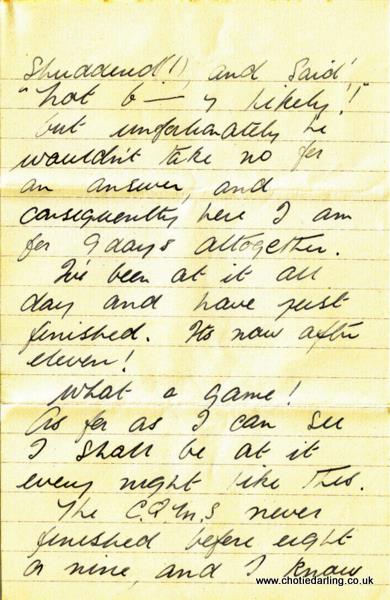 shuddered!!, and said,
"not b— y likely!"
but unfortunately he
wouldn't take no for
an answer, and
consequently here I am
for 9 days altogether.
I've been at it all
day and have just
finished. Its now after
eleven!
What a game!
As far as I can see
I shall be at it
every night like this.
The C.Q.M.S never
finished before eight
or nine, and I know
www.chotiedarling.co.uk